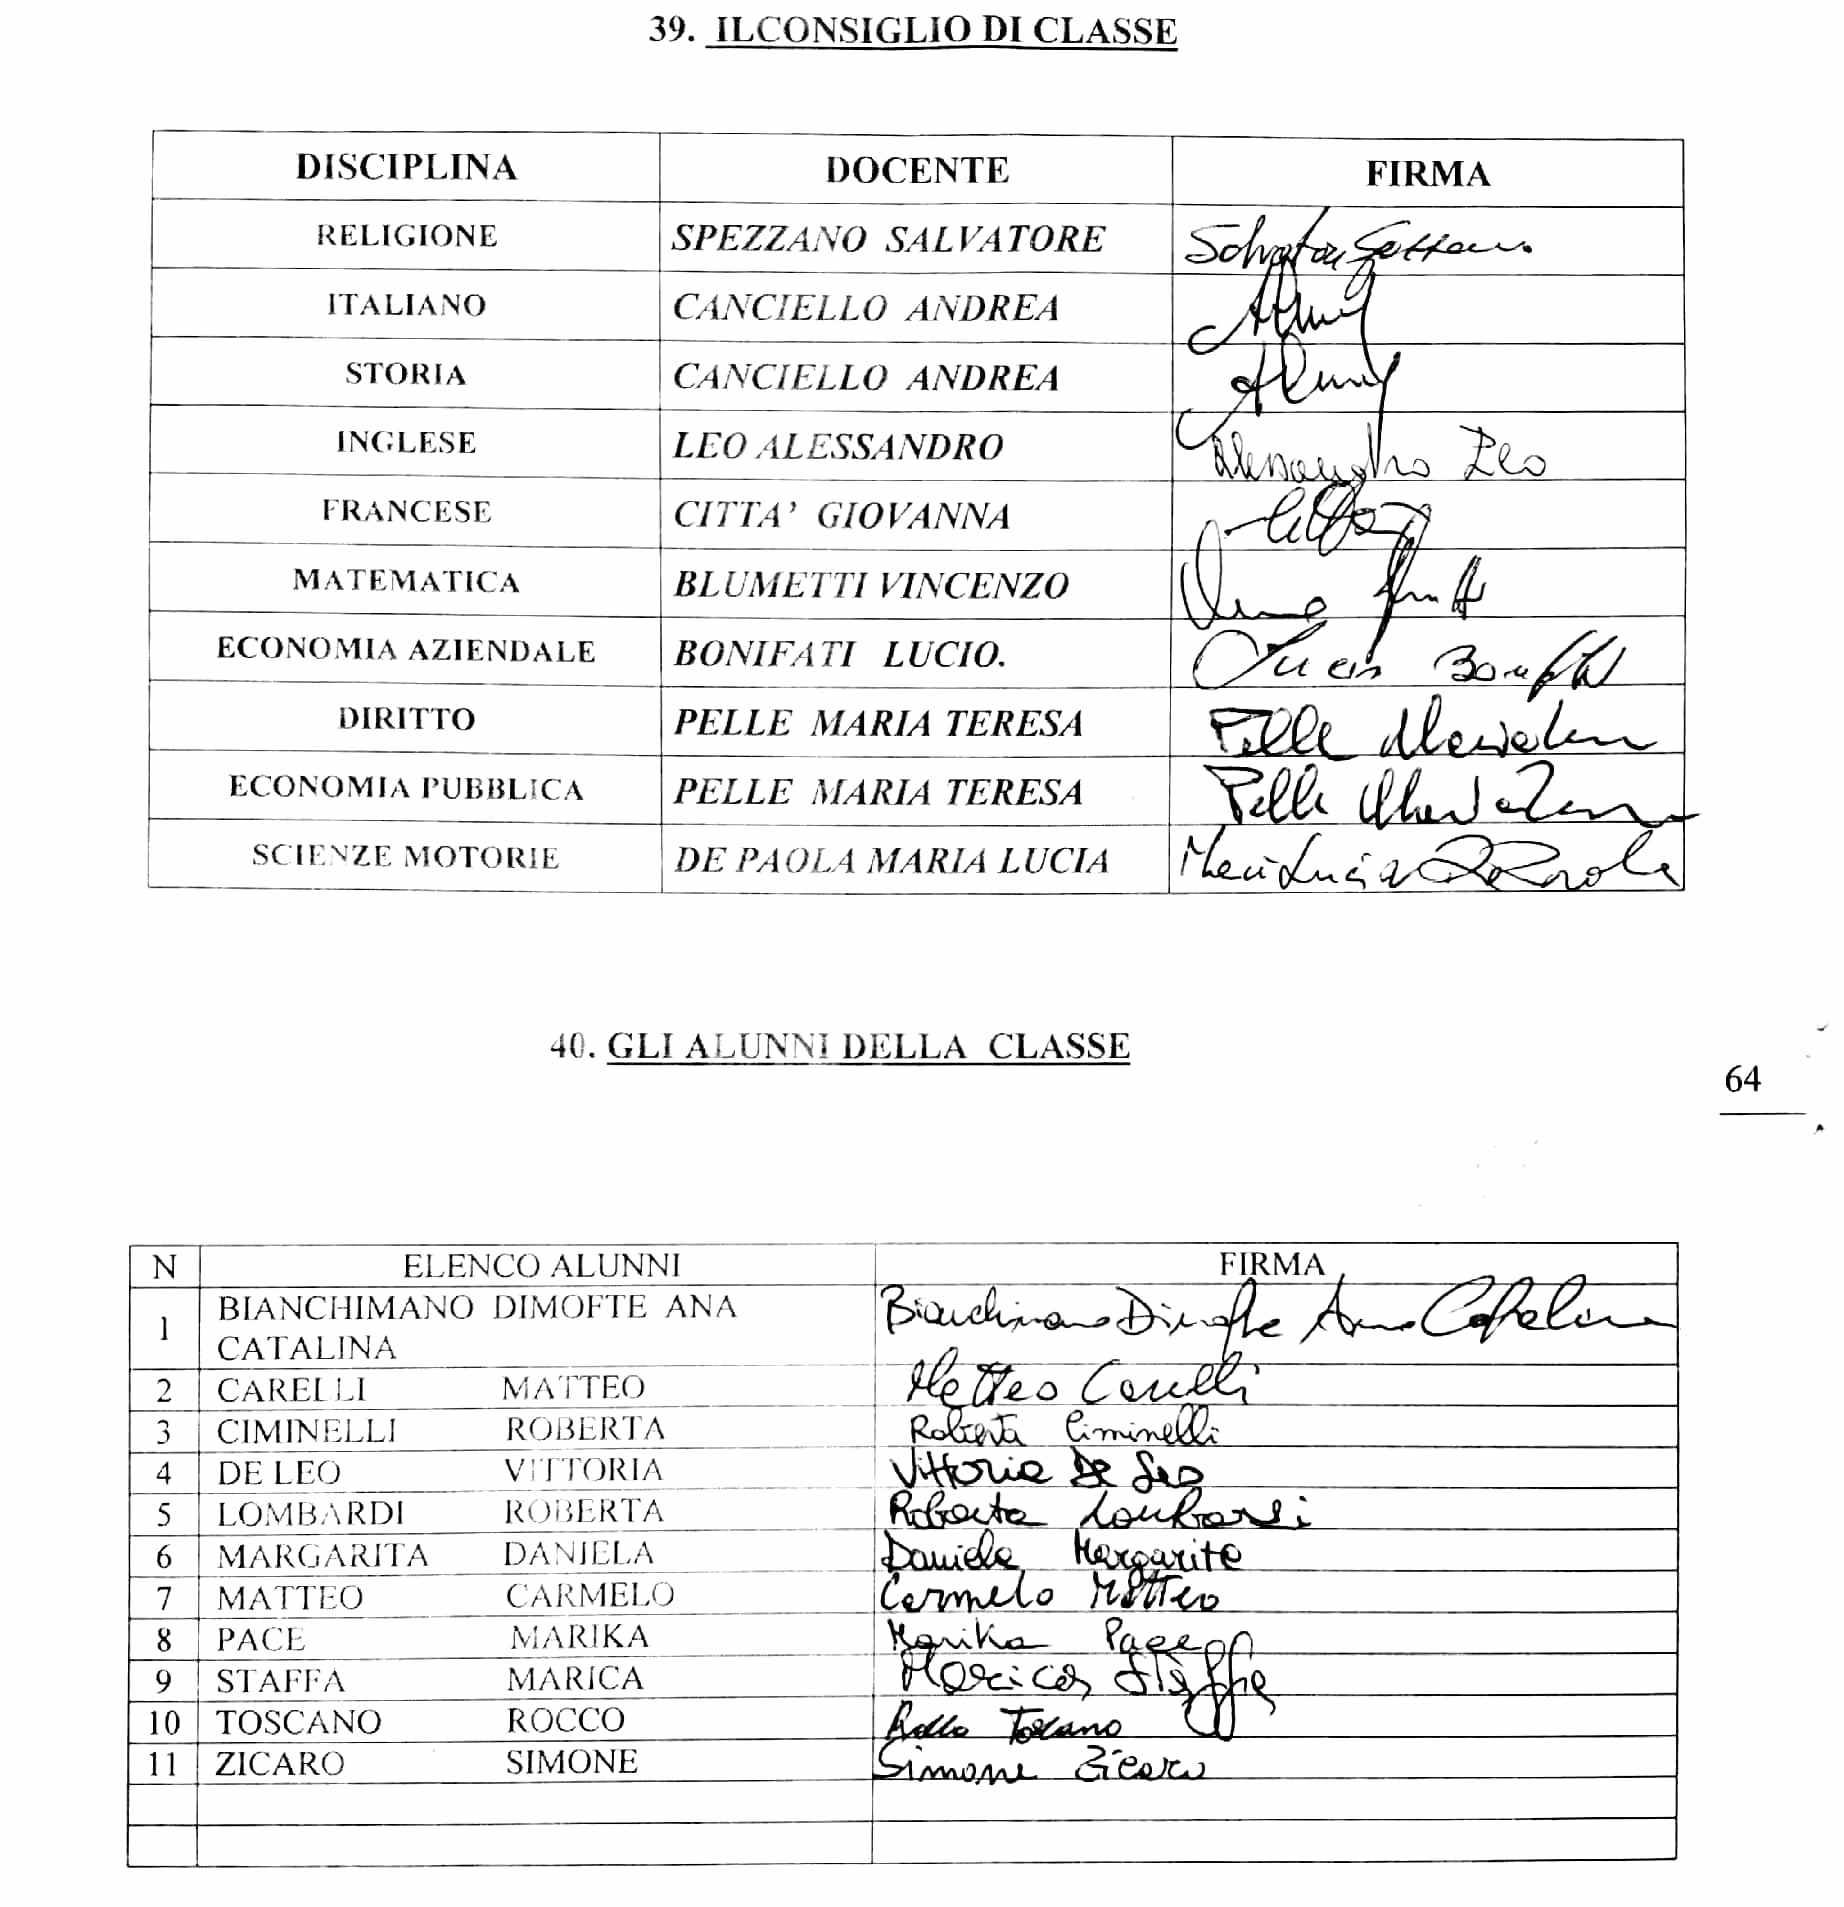 39. ILCONSIGLIO DI CLASSE
DISCIPLINA DOCENTE FIRMA
RELIGIONE SPEZZANO SALVATORE
ITALIANO CANCIELLO ANDREA
STORIA CANCIELLO ANDREA
INGLESE LEO ALESSANDRO Alessandro Leo
FRANCESE CITTA' GIOVANNA
MATEMATICA BLUMETTI VINCENZO
ECONOMIA AZIENDALE BONIFATI LUCIO. Lucio
DIRITTO PELLE MARIA TERESA Pelle
ECONOMIA PUBBLICA PELLE MARIA TERESA Pelle
SCIENZE MOTORIE DE PAOLA MARIA LUCIA Maria Lucia De Paola
40. GLI ALUNNI DELLA CLASSE
64
N ELENCO ALUNNI FIRMA
1 BIANCHIMANO DIMOFTE ANA Bianchimano Dimofte Ana Catalina
CATALINA
2 CARELLI MATTEO Matteo Carelli
3 CIMINELLI ROBERTA Roberta Ciminelli
4 DE LEO VITTORIA Vittoria De Leo
5 LOMBARDI ROBERTA Roberta Lombardi
6 MARGARITA DANIELA Daniela Margarita
7 MATTEO CARMELO Carmelo Matteo
8 PACE MARIKA Marika Pace
9 STAFFA MARICA Marica Staffa
10 TOSCANO ROCCO Rocco Toscano
11 ZICARO SIMONE Simone Zicaro